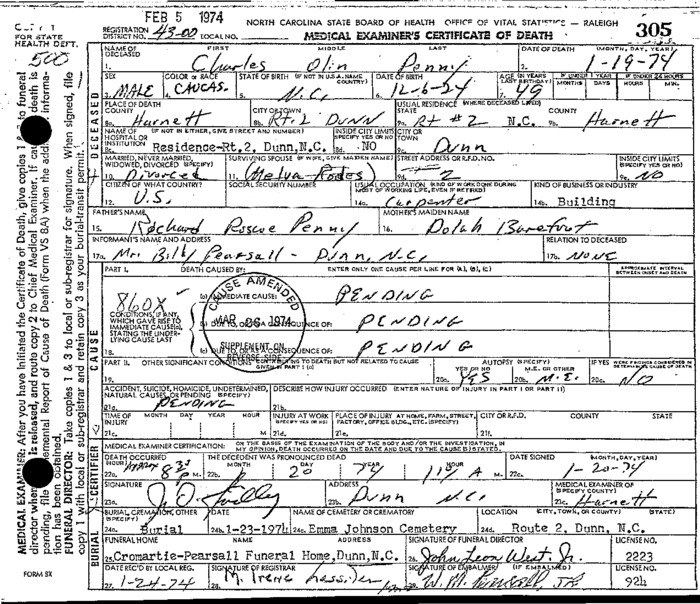 FEB 5 1974
NORTH CAROLINA STATE BOARD OF HEALTH OFFICE OF VITAL STATISTICS - RALEIGH
REGISTRATION DISTRICT NO. 43-00 LOCAL NO.
MEDICAL EXAMINER'S CERTIFICATE OF DEATH
305
FOR STATE HEALTH DEPT.
500
NAME OF DECEASED FIRST MIDDLE LAST DATE OF DEATH (MONTH, DAY, YEAR)
1. Charles Olin Penny 2. 1-19-74
SEX COLOR or RACE STATE OF BIRTH (IF NOT IN U.S.A. NAME COUNTRY) DATE OF BIRTH AGE (IN YEARS LAST BIRTHDAY) IF UNDER 1 YEAR IF UNDER 24 HOURS
MONTHS DAYS HOURS MIN.
3. MALE 4. CAUCAS. 5. N.C. 6. 12-6-24 7. 49
PLACE OF DEATH COUNTY CITY OR TOWN USUAL RESIDENCE (WHERE DECEASED LIVED) STATE COUNTY
8a. Harnett 8b. Rt. 2 Dunn 9a. Rt #2 N.C. 9b. Harnett
NAME OF HOSPITAL OR INSTITUTION (IF NOT IN EITHER, GIVE STREET AND NUMBER) INSIDE CITY LIMITS (SPECIFY YES OR NO) CITY OR TOWN
8c. Residence-Rt.2, Dunn,N.C. 8d. NO 9c. Dunn
MARRIED, NEVER MARRIED, WIDOWED, DIVORCED (SPECIFY) SURVIVING SPOUSE (IF WIFE, GIVE MAIDEN NAME) STREET ADDRESS OR R.F.D. NO. INSIDE CITY LIMITS (SPECIFY YES OR NO)
10. Divorced 11. (Melva Rodes) 9d. #2 9e. NO
CITIZEN OF WHAT COUNTRY? SOCIAL SECURITY NUMBER USUAL OCCUPATION (KIND OF WORK DONE DURING MOST OF WORKING LIFE, EVEN IF RETIRED) KIND OF BUSINESS OR INDUSTRY
12. U.S. 14a. Carpenter 14b. Building
FATHER'S NAME MOTHER'S MAIDEN NAME
15. Richard Roscoe Penny 16. Dolah Barefoot
INFORMANT'S NAME AND ADDRESS RELATION TO DECEASED
17a. Mr. Billy Pearsall - Dunn, N.C. 17b. NONE
PART I. DEATH CAUSED BY: ENTER ONLY ONE CAUSE PER LINE FOR (A), (B), (C) APPROXIMATE INTERVAL BETWEEN ONSET AND DEATH
860X
(a) IMMEDIATE CAUSE: PENDING
CONDITIONS, IF ANY, WHICH GAVE RISE TO IMMEDIATE CAUSE(a), STATING THE UNDERLYING CAUSE LAST
(b) DUE TO, OR AS A CONSEQUENCE OF: PENDING
18. (c) DUE TO, OR AS A CONSEQUENCE OF: PENDING
CAUSE AMENDED
MAR 26 1974
SUPPLEMENT ON REVERSE SIDE
PART II. OTHER SIGNIFICANT CONDITIONS CONTRIBUTING TO DEATH BUT NOT RELATED TO CAUSE GIVEN IN PART I (a) AUTOPSY (SPECIFY) YES OR NO M.E. OR OTHER IF YES WERE FINDINGS CONSIDERED IN DETERMINING CAUSE OF DEATH
19. 20a. YES 20b. M.E. 20c. NO
ACCIDENT, SUICIDE, HOMICIDE, UNDETERMINED, NATURAL CAUSES, OR PENDING (SPECIFY) DESCRIBE HOW INJURY OCCURRED (ENTER NATURE OF INJURY IN PART I OR PART II)
21a. PENDING 21b.
TIME OF INJURY MONTH DAY YEAR HOUR INJURY AT WORK (SPECIFY YES OR NO) PLACE OF INJURY AT HOME, FARM, STREET, FACTORY, OFFICE BLDG., ETC. (SPECIFY) CITY OR R.F.D. COUNTY STATE
21c. M 21d. 21e. 21f.
MEDICAL EXAMINER CERTIFICATION: ON THE BASIS OF THE EXAMINATION OF THE BODY AND/OR THE INVESTIGATION, IN MY OPINION, DEATH OCCURRED ON THE DATE AND DUE TO THE CAUSE(S) STATED.
DEATH OCCURRED (HOUR) THE DECEDENT WAS PRONOUNCED DEAD MONTH DAY YEAR HOUR DATE SIGNED (MONTH, DAY, YEAR)
22a. M. 22b. 20 74 A M. 22c. 1-20-74
SIGNATURE ADDRESS MEDICAL EXAMINER OF (SPECIFY COUNTY)
23a. 23b. Dunn N.C. 23c. Harnett
BURIAL, CREMATION, OTHER (SPECIFY) DATE NAME OF CEMETERY OR CREMATORY LOCATION (CITY, TOWN, OR COUNTY) (STATE)
24a. Burial 24b. 1-23-1974 24c. Emma Johnson Cemetery 24d. Route 2, Dunn, N.C.
FUNERAL HOME NAME ADDRESS SIGNATURE OF FUNERAL DIRECTOR LICENSE NO.
25. Cromartie-Pearsall Funeral Home, Dunn,N.C. 26. John Leon West Jr. 2223
DATE REC'D BY LOCAL REG. SIGNATURE OF REGISTRAR SIGNATURE OF EMBALMER (IF EMBALMED) LICENSE NO.
1-24-74 28. M. Irene 924
FORM 8X
DECEASED
CAUSE
CERTIFIER
BURIAL